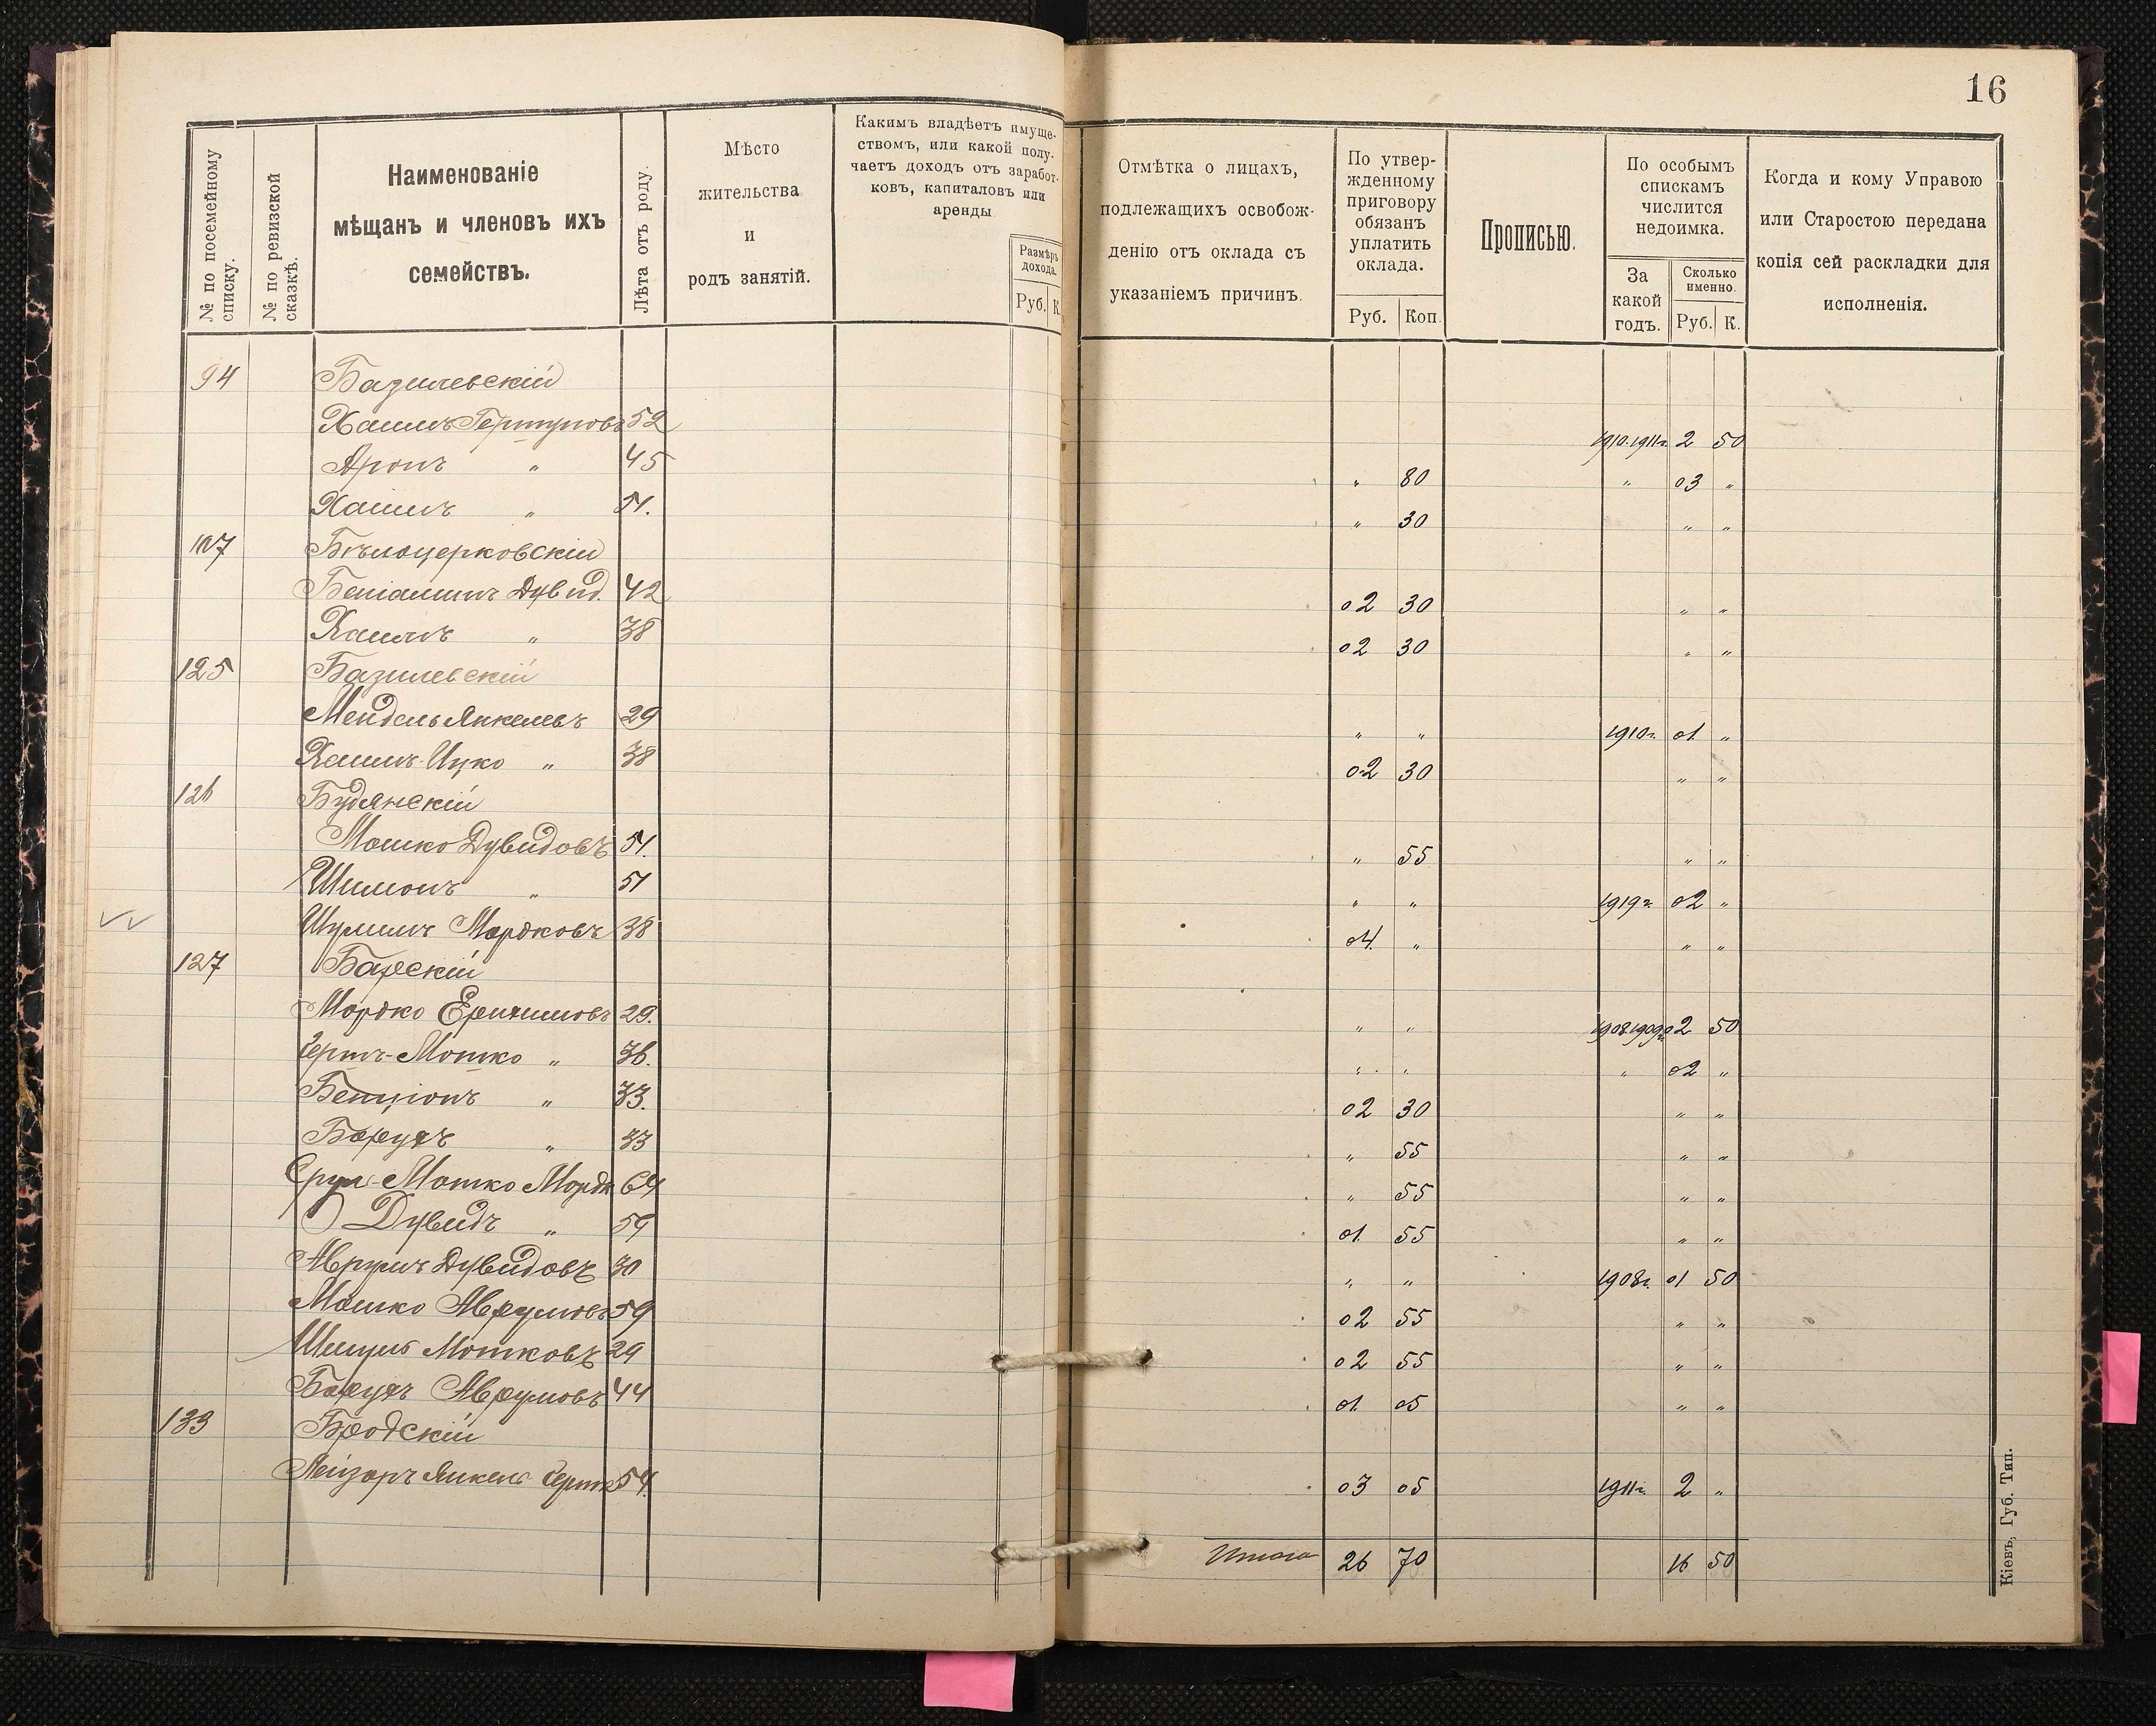 16
№ по посемейному списку.
№ по ревизской сказкѣ.
Наименованіе
мѣщанъ и членовъ ихъ
семействъ.
Лѣта отъ роду.
Мѣсто
жительства
и
родъ занятій.
Какимъ владѣетъ имуще-
ствомъ, или какой полу-
чаетъ доходъ отъ заработ-
ковъ, капиталовъ или
аренды
Размѣръ
дохода.
Руб. К.
Отмѣтка о лицахъ,
подлежащихъ освобож-
денію отъ оклада съ
указаніемъ причинъ.
По утвер-
жденному
приговору
обязанъ
уплатить
оклада.
Руб. Коп.
Прописью.
По особымъ
спискамъ
числится
недоимка.
За
какой
годъ.
Сколько
именно.
Руб. К.
Когда и кому Управою
или Старостою передана
копія сей раскладки для
исполненія.
94 Базилевскій
Хаимъ 52 1910-1911г. 2 50
Аронъ " 45 " 80 " 03 "
Хаимъ " 51. " 30 " "
107 Бѣлоцерковскій
Беніаминъ Дувид. 42 02 30 " "
Хаимъ " 38 02 30 " "
125 Базилевскій
Мендель Янкелевъ 29 " " 1910г. 01 "
Хаимъ-Ицко " 38 02 30 " "
126 Будянскій
Мошко Дувидовъ 51. " 55 " "
Шимонъ " 51 " " 1919г. 02 "
Шулимъ Мордковъ 38 04. " " "
127 Барскій
Мордко 29. " " 1908.1909г. 02 50
Герш-Мотко " 36. " " " 02 "
Бенціонъ " 33. 02 30 " "
Борухъ " 33 " 55 " "
Срул-Мотко Мордк 64 " 55 " "
Дувидъ " 59 01. 55 " "
Аврумъ Дувидовъ 30 " " 1908г. 01 50
Мошко Аврумовъ 59 02 55 " "
Мотковъ 29 02 55 " "
Борухъ Аврумовъ 44 01. 05 " "
133 Бродскій
Лейзоръ Янкель Герш 54. 03 05 1911г. 2 "
Итого 26 70 16 50
Кіевъ, Губ. Тип.